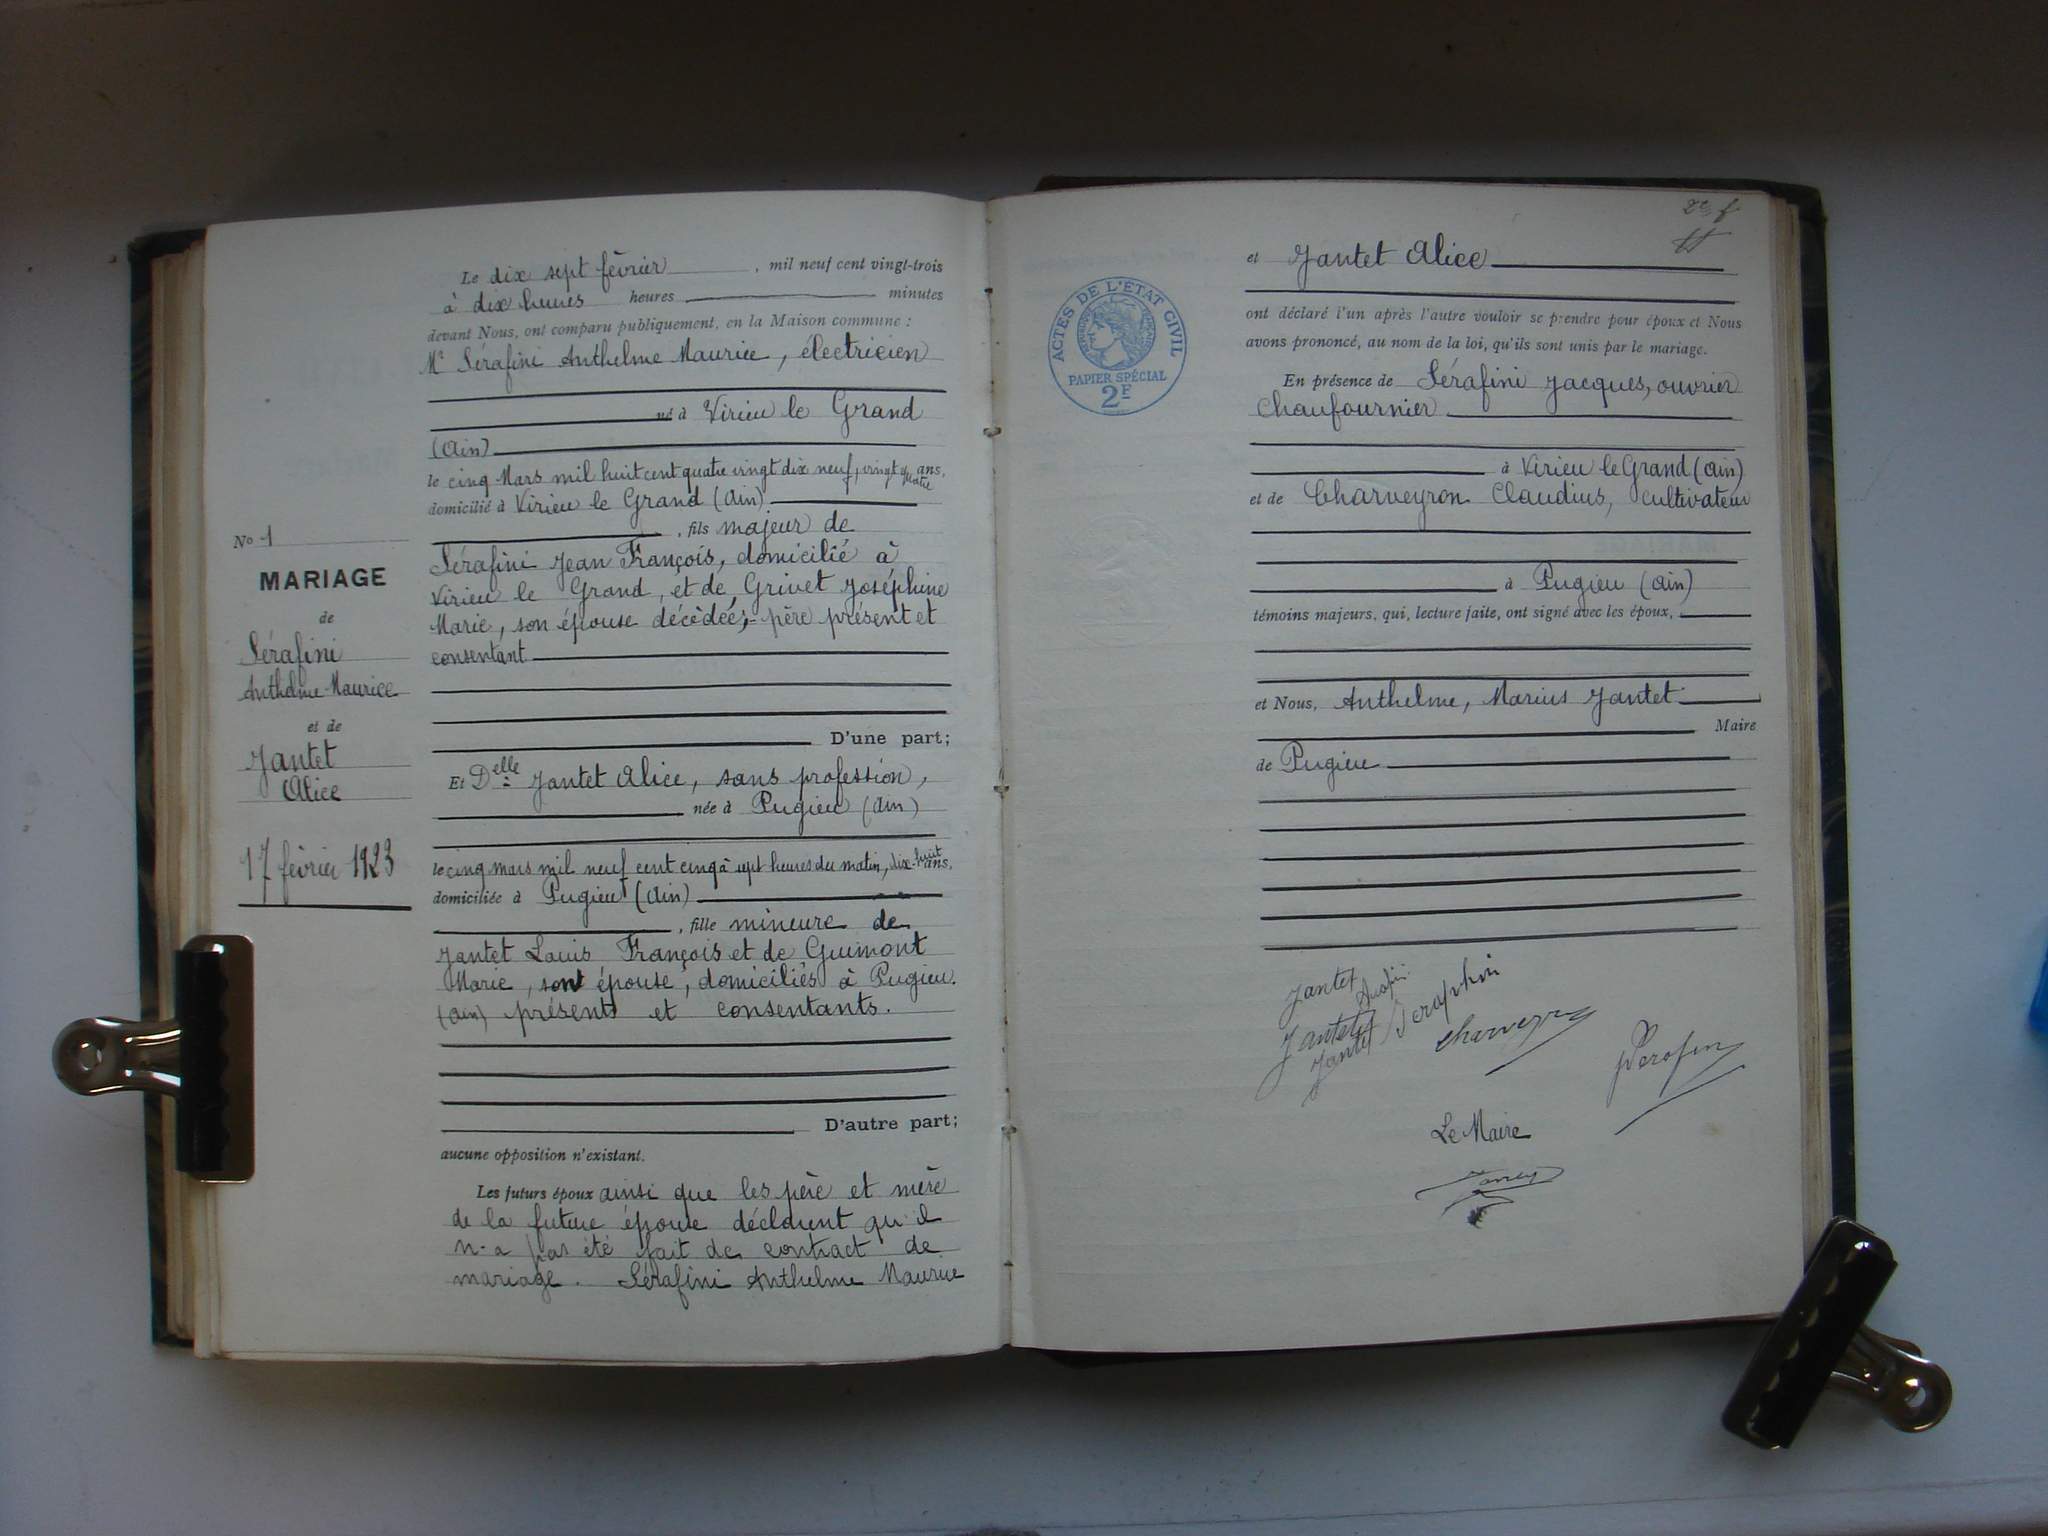 Le dix sept février, mil neuf cent vingt-trois
à dix heures heures minutes
devant Nous, ont comparu publiquement, en la Maison commune :
Mr Sérafini Anthelme Maurice, électricien
né à Virieu le Grand
(Ain)
le cinq Mars mil huit cent quatre vingt dix neuf, vingt quatre ans,
domicilié à Virieu le Grand (Ain)
, fils majeur de
Sérafini Jean François, domicilié à
Virieu le Grand, et de Grivet Joséphine
Marie, son épouse décédée, père présent et
consentant
D'une part;
Et Delle Jantet Alice, sans profession,
née à Pugieu (Ain)
le cinq mars mil neuf cent cinq à sept heures du matin, dix-huit ans,
domiciliée à Pugieu (Ain)
, fille mineure de
Jantet Louis François et de Guimont
Marie, son épouse, domiciliés à Pugieu.
(Ain) présents et consentants.
D'autre part;
aucune opposition n'existant.
Les futurs époux ainsi que les père et mère
de la future épouse déclarent qu'il
n'a pas été fait de contract de
mariage. Sérafini Anthelme Maurice
No 1
MARIAGE
de
Sérafini
Anthelme-Maurice
et de
Jantet
Alice
17 février 1923
ACTES DE L'ÉTAT CIVIL
PAPIER SPÉCIAL
2F
et Jantet Alice
ont déclaré l'un après l'autre vouloir se prendre pour époux et Nous
avons prononcé, au nom de la loi, qu'ils sont unis par le mariage.
En présence de Sérafini Jacques, ouvrier
Chaufournier
à Virieu le Grand (Ain)
et de Charveyron Claudius, cultivateur
à Pugieu (Ain)
témoins majeurs, qui, lecture faite, ont signé avec les époux,
et Nous, Anthelme, Marius Jantet
Maire
de Pugieu
Jantet
Jantet Seraphin
Jantet
Charveyron
Serafin
Le Maire